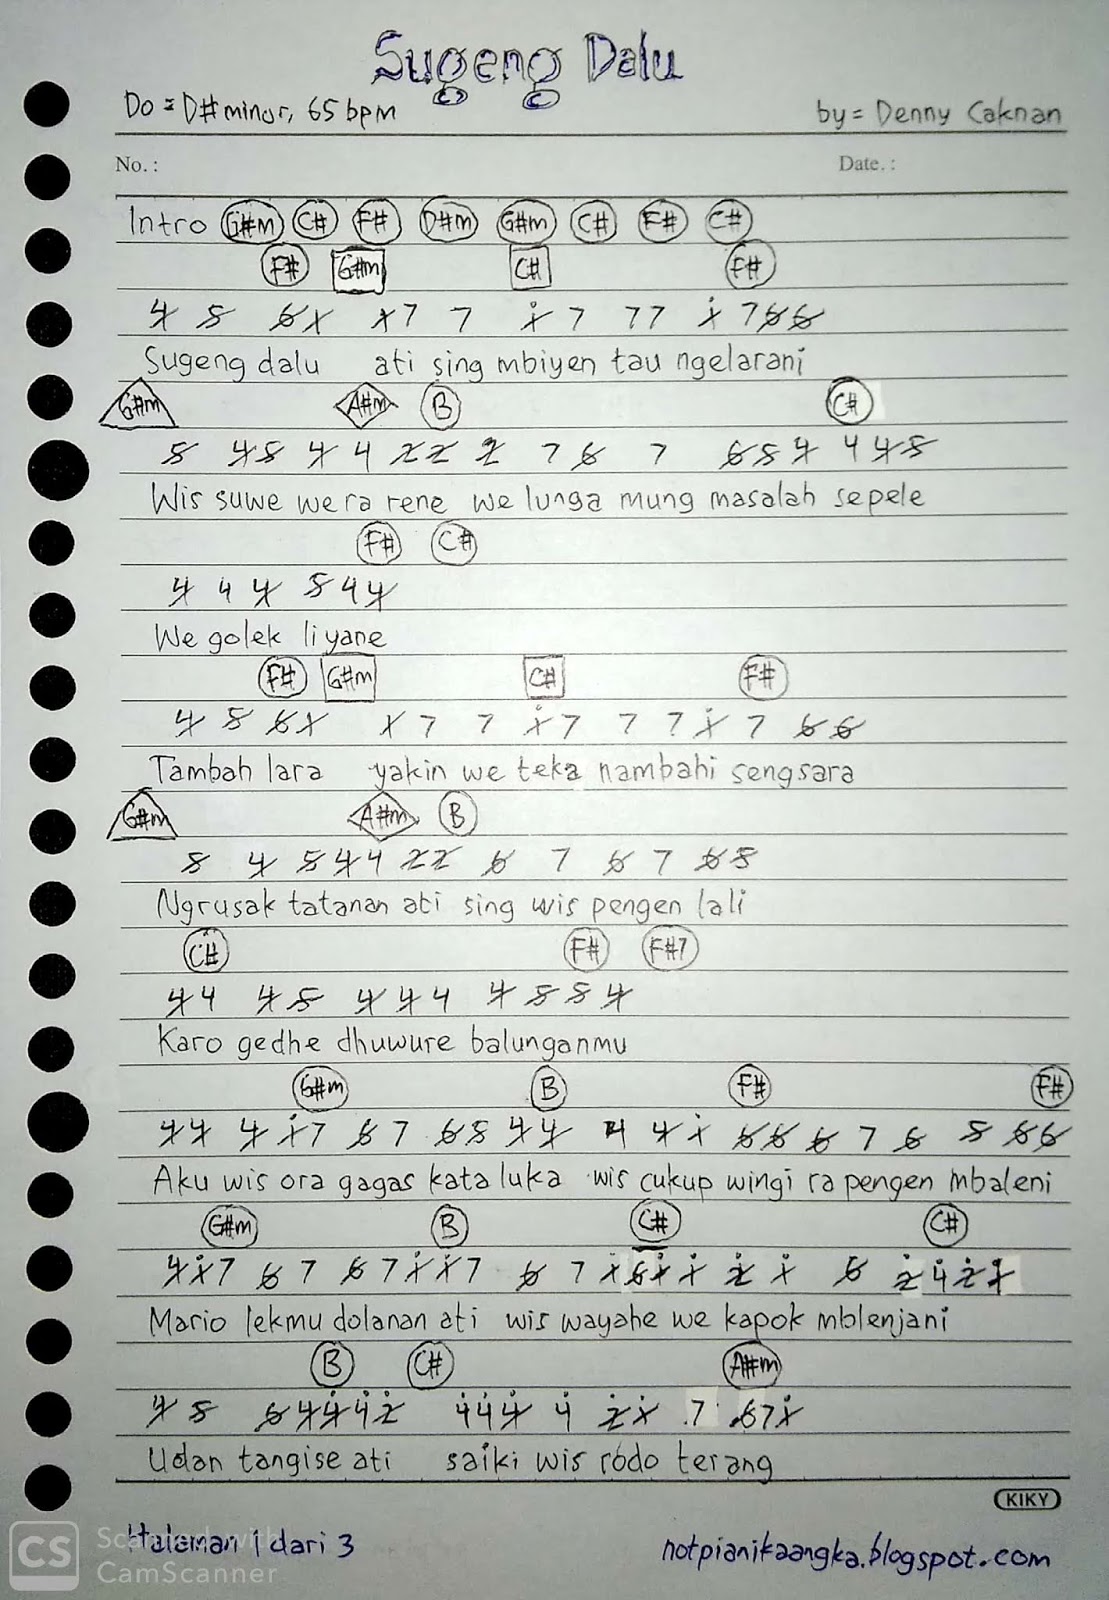 Sugeng Dalu
Do = D# minor, 65 bpm by = Denny Caknan
No. : Date. :
Intro G#m C# F# D#m G#m C# F# C#
F# G#m C# F#
4 5 6 1 1 7 7 1 7 7 7 1 7 6 6
Sugeng dalu ati sing mbiyen tau ngelarani
G#m A#m B C#
5 4 5 4 4 2 2 2 7 6 7 6 5 4 4 4 5
Wis suwe we ra rene we lunga mung masalah sepele
F# C#
4 4 4 5 4 4
We golek liyane
F# G#m C# F#
4 5 6 1 1 7 7 1 7 7 7 1 7 6 6
Tambah lara yakin we teka nambahi sengsara
G#m A#m B
5 4 5 4 4 2 2 6 7 6 7 6 5
Ngrusak tatanan ati sing wis pengen lali
C# F# F#7
4 4 4 5 4 4 4 4 5 5 4
Karo gedhe dhuwure balunganmu
G#m B F# F#
4 4 4 1 7 6 7 6 5 4 4 4 4 1 6 6 6 7 6 5 6 6
Aku wis ora gagas kata luka wis cukup wingi ra pengen mbaleni
G#m B C# C#
4 1 7 6 7 6 7 1 1 7 6 7 1 6 1 1 2 1 6 2 4 2 1
Mario lekmu dolanan ati wis wayahe we kapok mblenjani
B C# A#m
4 5 6 4 4 4 2 4 4 4 4 2 1 7 6 7 1
Udan tangise ati saiki wis rodo terang
KIKY
Halaman 1 dari 3 notpianikaangka.blogspot.com
CS Scanned with
CamScanner